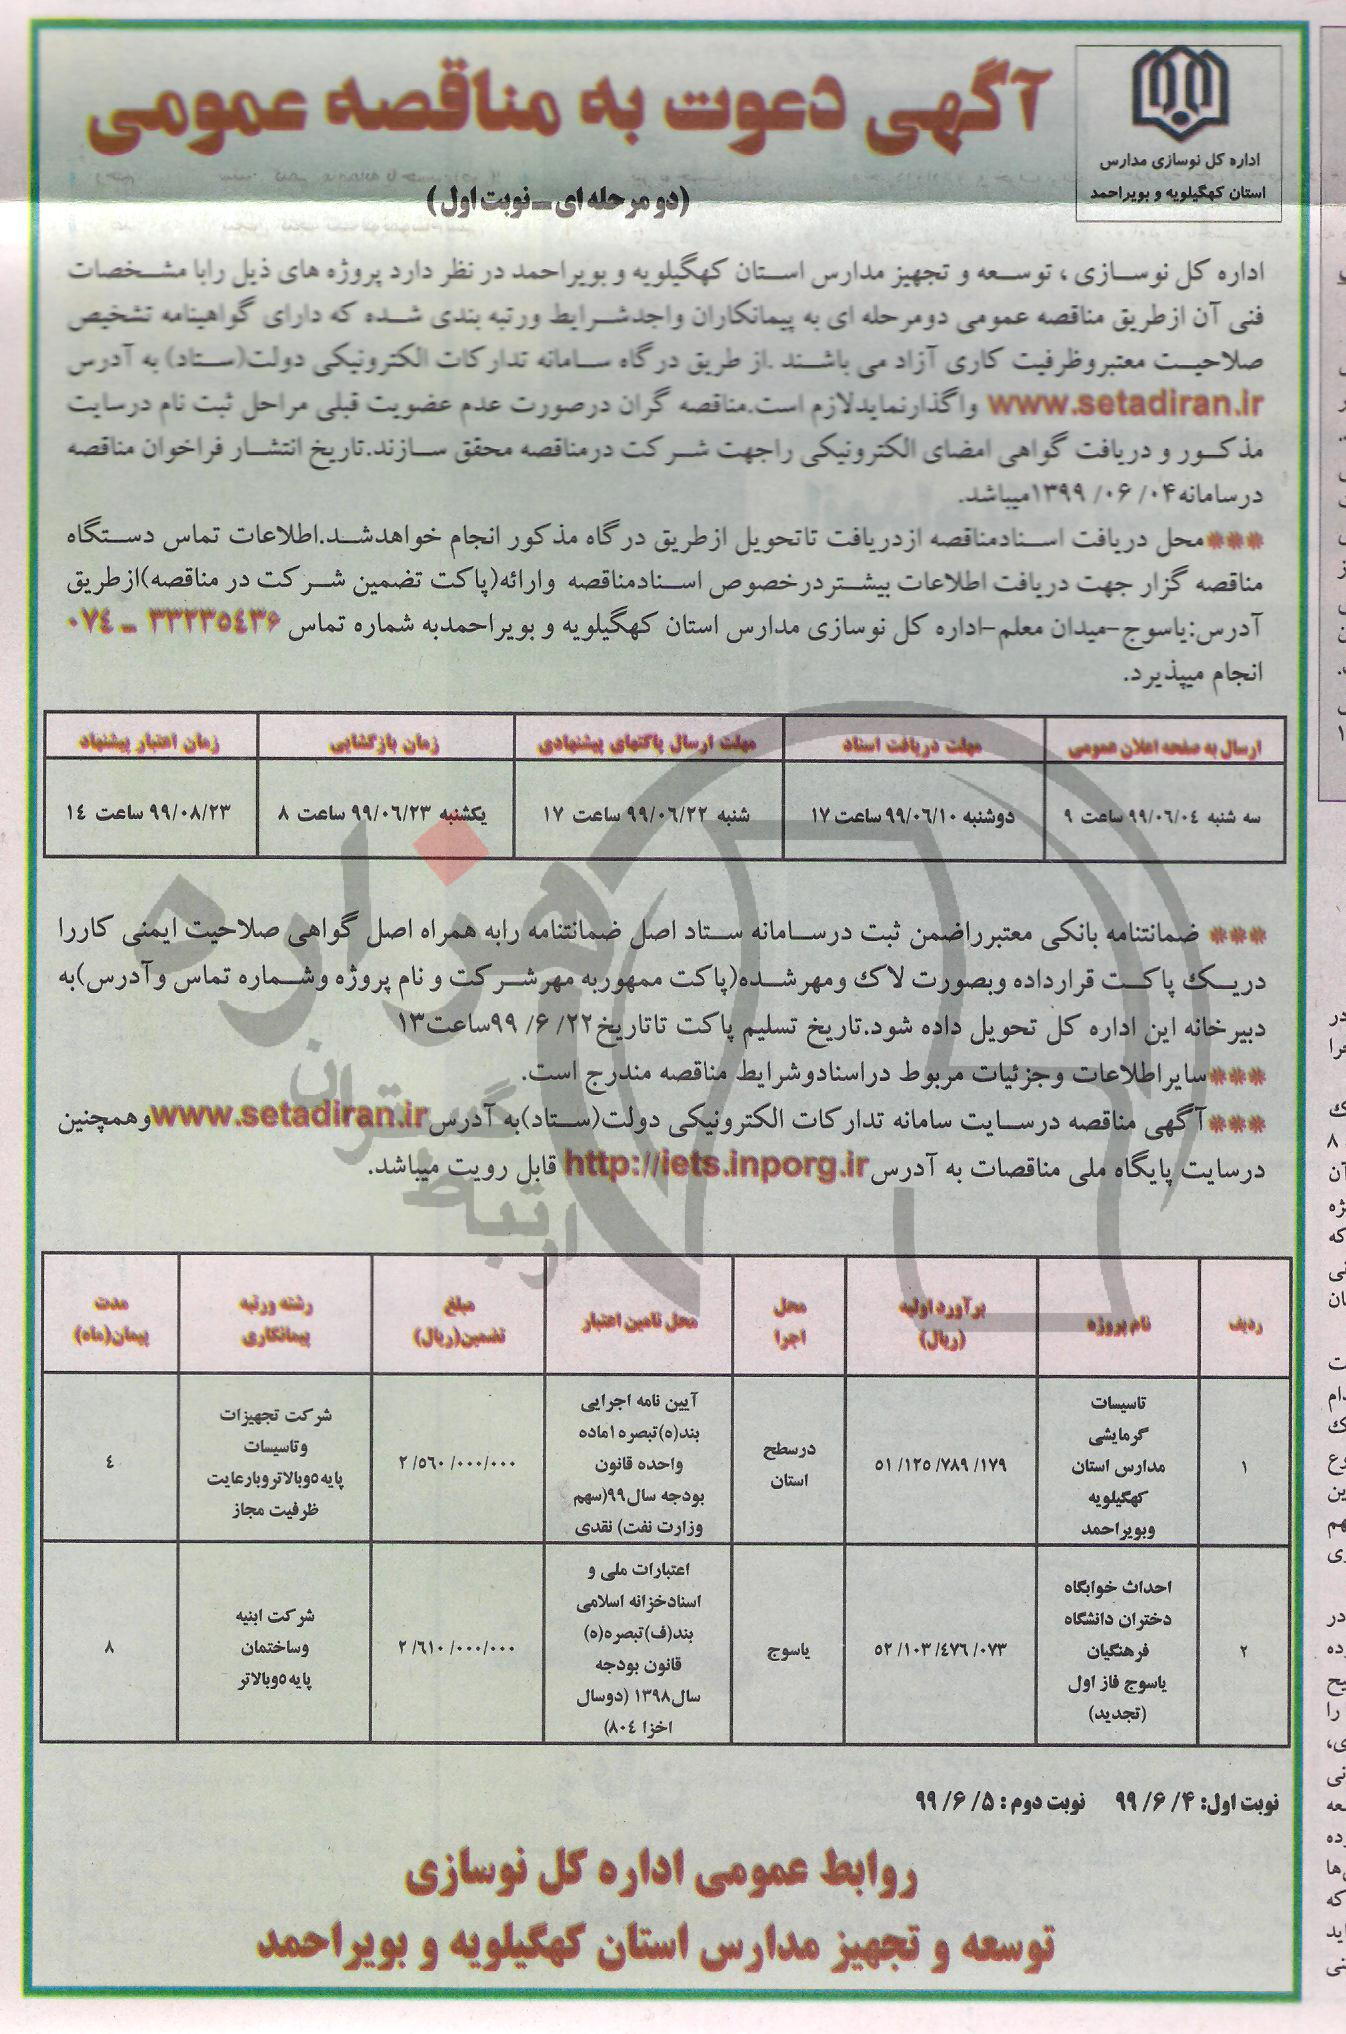 اداره کل نوسازی مدارس
استان کهگیلویه و بویراحمد
آگهی دعوت به مناقصه عمومی
(دو مرحله ای – نوبت اول)
اداره کل نوسازی ، توسعه و تجهیز مدارس استان کهگیلویه و بویراحمد در نظر دارد پروژه های ذیل رابا مشخصات
فنی آن ازطریق مناقصه عمومی دومرحله ای به پیمانکاران واجدشرایط ورتبه بندی شده که دارای گواهینامه تشخیص
صلاحیت معتبروظرفیت کاری آزاد می باشند .از طریق درگاه سامانه تدارکات الکترونیکی دولت(ستاد) به آدرس
www.setadiran.ir واگذارنمایدلازم است.مناقصه گران درصورت عدم عضویت قبلی مراحل ثبت نام درسایت
مذکور و دریافت گواهی امضای الکترونیکی راجهت شرکت درمناقصه محقق سازند.تاریخ انتشار فراخوان مناقصه
درسامانه۰۴/ ۰۶/ ۱۳۹۹میباشد.
***محل دریافت اسنادمناقصه ازدریافت تاتحویل ازطریق درگاه مذکور انجام خواهدشد.اطلاعات تماس دستگاه
مناقصه گزار جهت دریافت اطلاعات بیشتردرخصوص اسنادمناقصه وارائه(پاکت تضمین شرکت در مناقصه)ازطریق
آدرس:یاسوج-میدان معلم-اداره کل نوسازی مدارس استان کهگیلویه و بویراحمدبه شماره تماس ۳۳۲۳۵۴۳۶ – ۰۷۴
انجام میپذیرد.
ارسال به صفحه اعلان عمومی	مهلت دریافت اسناد	مهلت ارسال پاکتهای پیشنهادی	زمان بازگشایی	زمان اعتبار پیشنهاد
سه شنبه ۹۹/۰۶/۰۴ ساعت ۹	دوشنبه ۹۹/۰۶/۱۰ ساعت ۱۷	شنبه ۹۹/۰۶/۲۲ ساعت ۱۷	یکشنبه ۹۹/۰۶/۲۳ ساعت ۸	۹۹/۰۸/۲۳ ساعت ۱۴
*** ضمانتنامه بانکی معتبرراضمن ثبت درسامانه ستاد اصل ضمانتنامه رابه همراه اصل گواهی صلاحیت ایمنی کاررا
دریک پاکت قرارداده وبصورت لاک ومهرشده(پاکت ممهوربه مهرشرکت و نام پروژه وشماره تماس وآدرس)به
دبیرخانه این اداره کل تحویل داده شود.تاریخ تسلیم پاکت تاتاریخ۲۲/ ۶/ ۹۹ساعت۱۳
***سایراطلاعات وجزئیات مربوط دراسنادوشرایط مناقصه مندرج است.
***آگهی مناقصه درسایت سامانه تدارکات الکترونیکی دولت(ستاد)به آدرسwww.setadiran.irوهمچنین
درسایت پایگاه ملی مناقصات به آدرسhttp://iets.inporg.ir قابل رویت میباشد.
ردیف	نام پروژه	برآورد اولیه (ریال)	محل اجرا	محل تامین اعتبار	مبلغ تضمین(ریال)	رشته ورتبه پیمانکاری	مدت پیمان(ماه)
۱	تاسیسات گرمایشی مدارس استان کهگیلویه وبویراحمد	۵۱/۱۲۵/۷۸۹/۱۷۹	درسطح استان	آیین نامه اجرایی بند(ه)تبصره۱ماده واحده قانون بودجه سال۹۹(سهم وزارت نفت) نقدی	۲/۵۶۰/۰۰۰/۰۰۰	شرکت تجهیزات وتاسیسات پایه۵وبالاتروبارعایت ظرفیت مجاز	۴
۲	احداث خوابگاه دختران دانشگاه فرهنگیان یاسوج فاز اول (تجدید)	۵۲/۱۰۳/۴۷۶/۰۷۳	یاسوج	اعتبارات ملی و اسنادخزانه اسلامی بند(ف)تبصره(ه) قانون بودجه سال۱۳۹۸ (دوسال اخزا ۸۰۴)	۲/۶۱۰/۰۰۰/۰۰۰	شرکت ابنیه وساختمان پایه۵وبالاتر	۸
نوبت اول: ۴/ ۶/ ۹۹ نوبت دوم : ۵/ ۶/ ۹۹
روابط عمومی اداره کل نوسازی
توسعه و تجهیز مدارس استان کهگیلویه و بویراحمد
هزاره
گستران
ارتباط